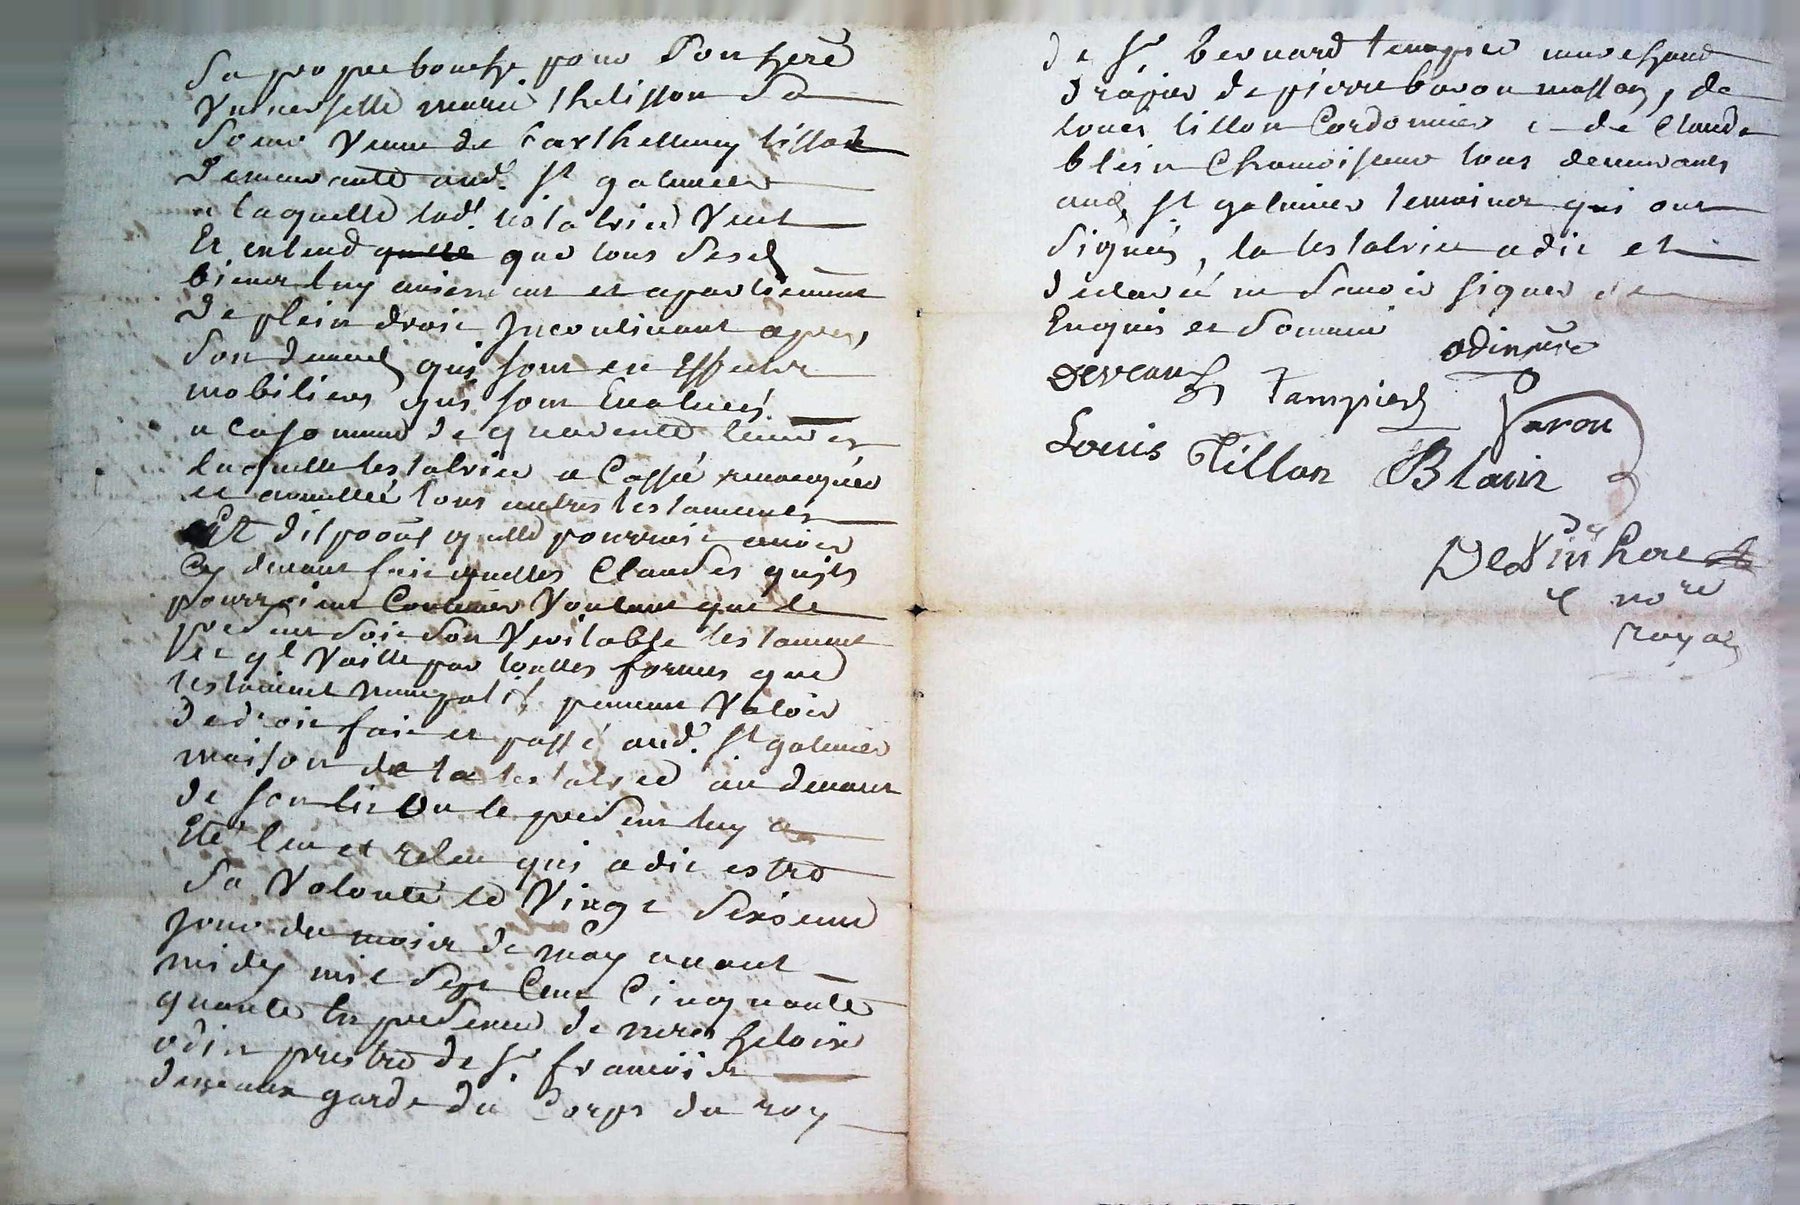 Sa propre bouche pour son here
Universelle marie thelisson Sa
Soeur Veuve de barthellemy tillon
demeurante aud. St galmier
a laquelle lad. testatrice Veut
Et entend que tous sesd
biens luy aviennent et apartiennent
de plein droit Incontinant apres
Son deced qui sont en Effects
mobiliers qui sont Evalues
a la somme de quarente livres
laquelle testatrice a Cassé revoqués
et annullé tous autres testaments
Et dispoons quelle pourroit avoir
Cy devant fait quelles Clauses quils
pourroient Contenir Voulant que le
present soit son Veritable testament
et ql Vaille par touttes formes que
testament nuncupatif peuvent Valoir
de droit fait et passé aud. St galmier
maison de la testatrice au devant
de son lit Ou le present luy a
Eté leu et releu qui a dit estre
Sa Volonté le Vingt sixieme
jour du mois de may avant
midy mil sept Cent Cinquante
quatre En presence de mere heloix
odin prestre de Sr. francois
deveaux garde du Corps du roy
de Sr bernard tempier marchand
drapier de pierre baron masson, de
louis tillon Cordonnier & de Claude
blein Chamoiseur tous demeurants
aud St galmier temoins qui ont
signés, la testatrice a dit et
declaré ne scavoir signer de
Enquis et Sommé
odin ptre
Deveaux Tampier Baron
Louis Tillon Blain
nore
royal